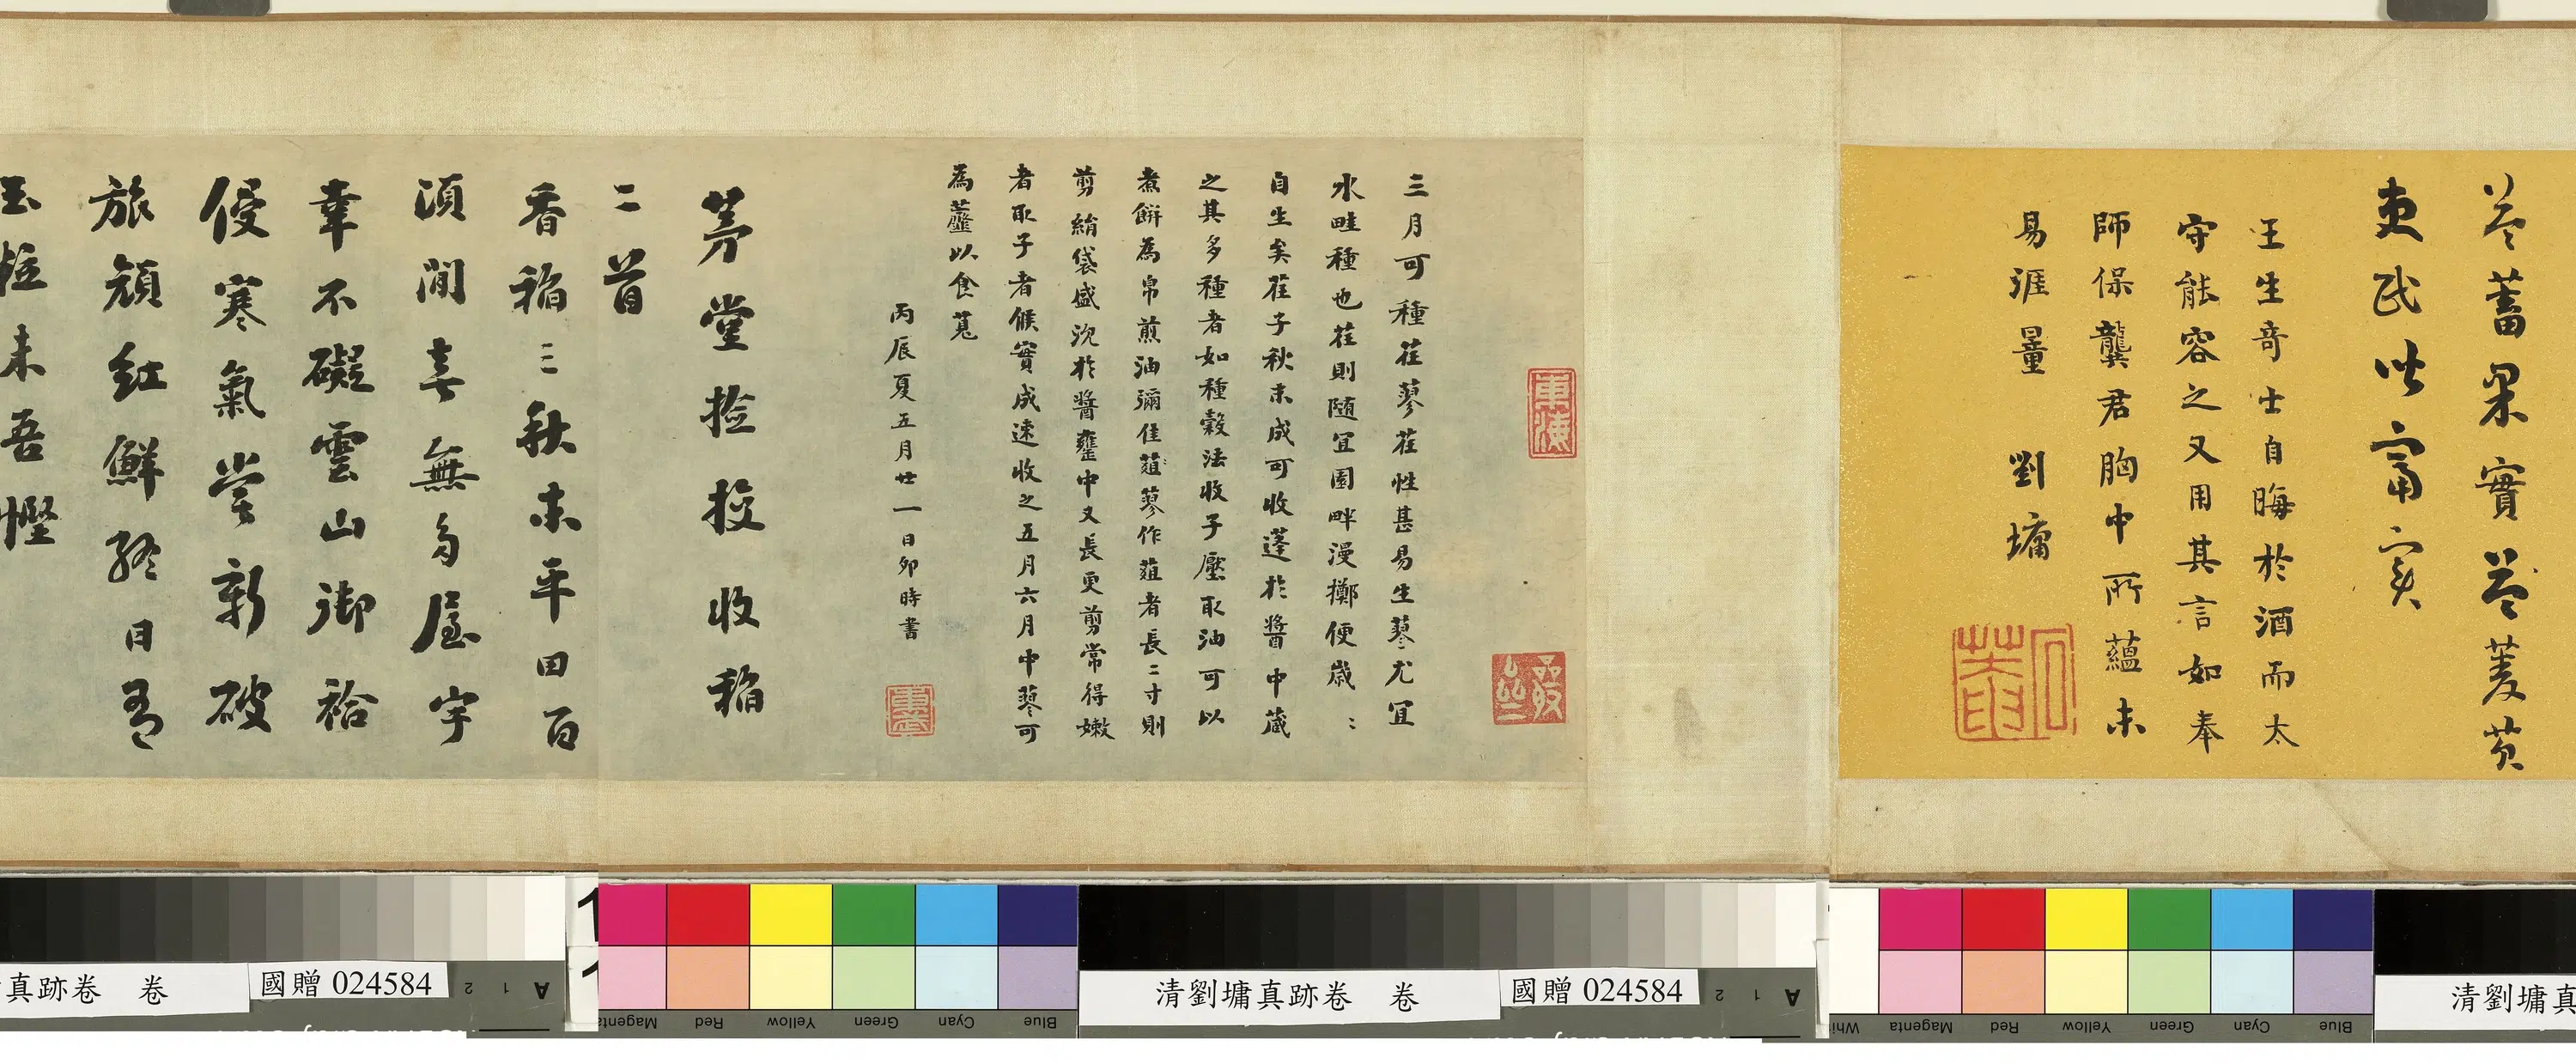 益蓄果實益菱芡
吏民皆富實
王生奇士自晦於酒而太
守能容之又用其言如奉
師保龔君胸中所蘊未
易涯量 劉墉
石菴
三月可種荏蓼荏性甚易生蓼尤宜
水畦種也荏則随宜園畔漫擲便歲〻
自生矣荏子秋末成可收蓬於醬中蔵
之其多種者如種穀法收子壓取油可以
煮餅為帛煎油彌佳葅蓼作葅者長二寸則
剪絹袋盛沈於醬甕中又長更剪常得嫩
者取子者候實成速收之五月六月中蓼可
為虀以食莧
丙辰夏五月廿一日卯時書
東武
茅堂撿挍收稲
二首
香稲三秋末平田百
頃間喜無多屋宇
幸不礙雲山御袷
侵寒氣嘗新破
旅顏紅鮮終日有
玉粒未吾慳
真跡卷 卷
國贈 024584
2 1 A
Magenta Red Yellow Green Cyan Blue
清劉墉真跡卷 卷
國贈 024584
2 1 A
Magenta Red Yellow Green Cyan Blue
清劉墉真